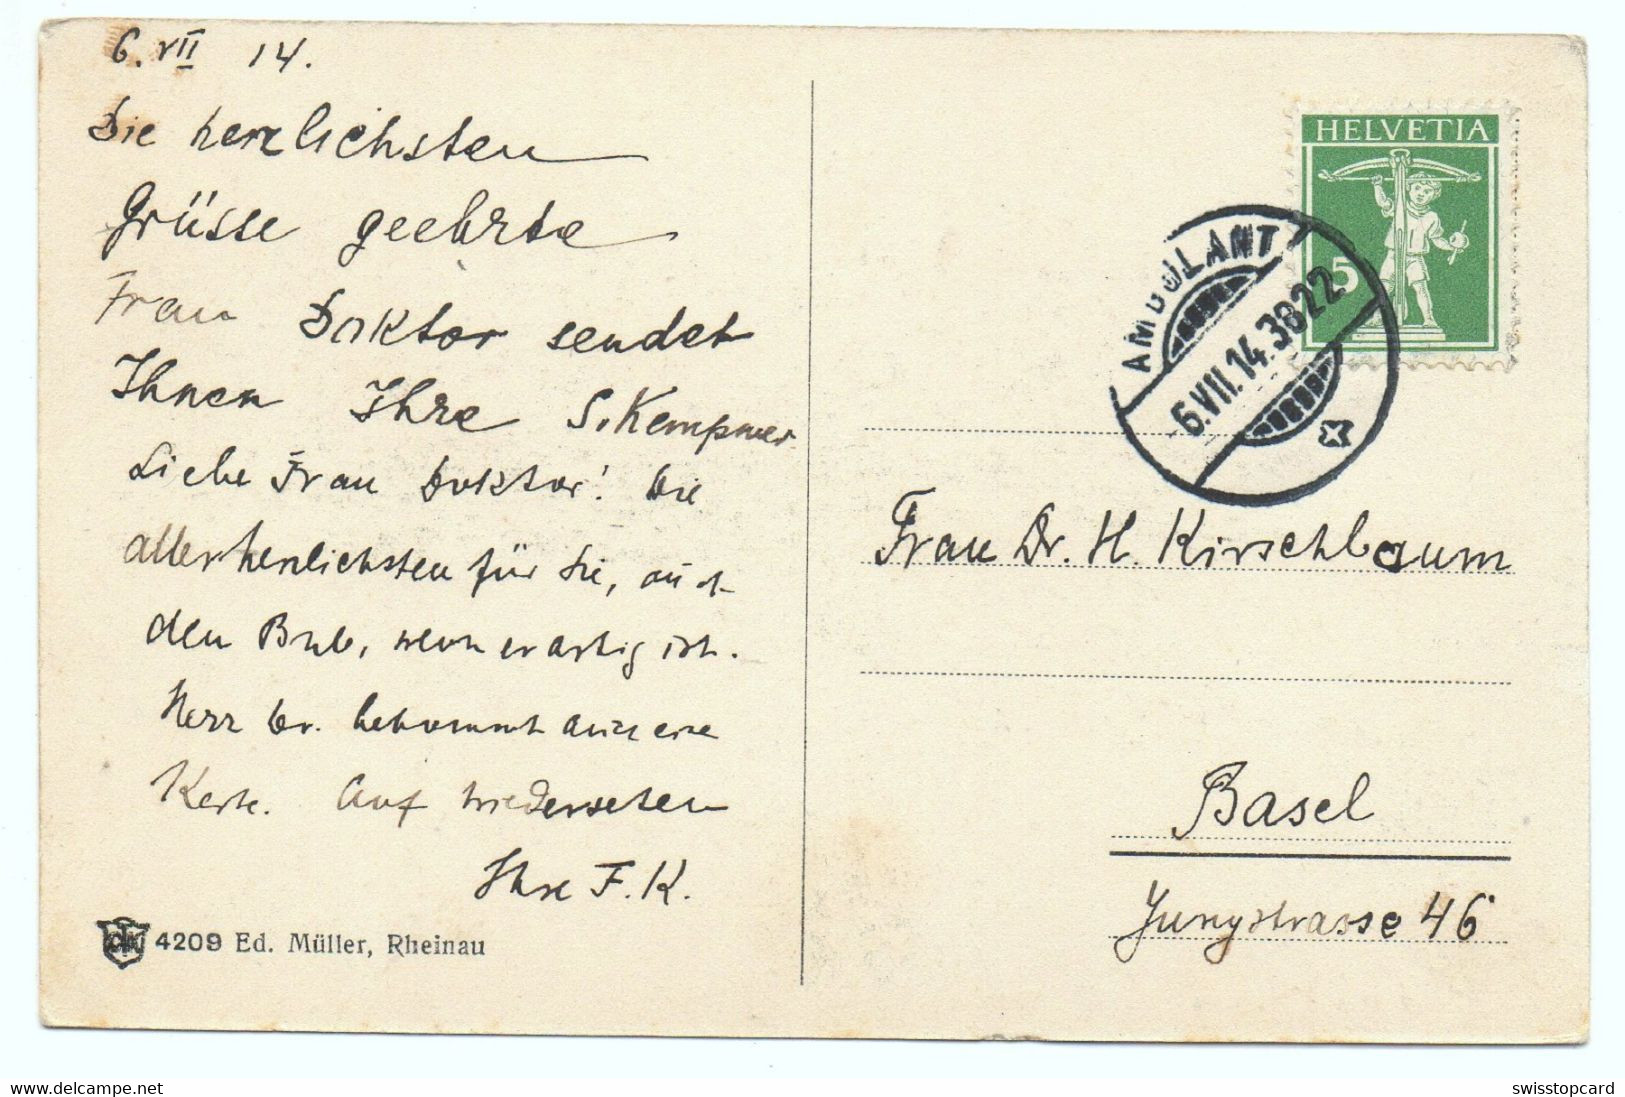 6. VII 14.
Die herzlichsten
Grüsse geehrte
Frau Doktor sendet
Ihnen Ihre S. Kempner
Liebe Frau Doktor! Die
allerherzlichsten für Sie, auch
den Bub, wenn er artig ist.
Herr Dr. bekommt auch eine
Karte. Auf Wiedersehen
Ihre F. K.
4209 Ed. Müller, Rheinau
HELVETIA
5
AMBULANT
6.VII.14.3822
Frau Dr. H. Kirschbaum
Basel
Jungstrasse 46
https://www.delcampe.net
swisstopcard